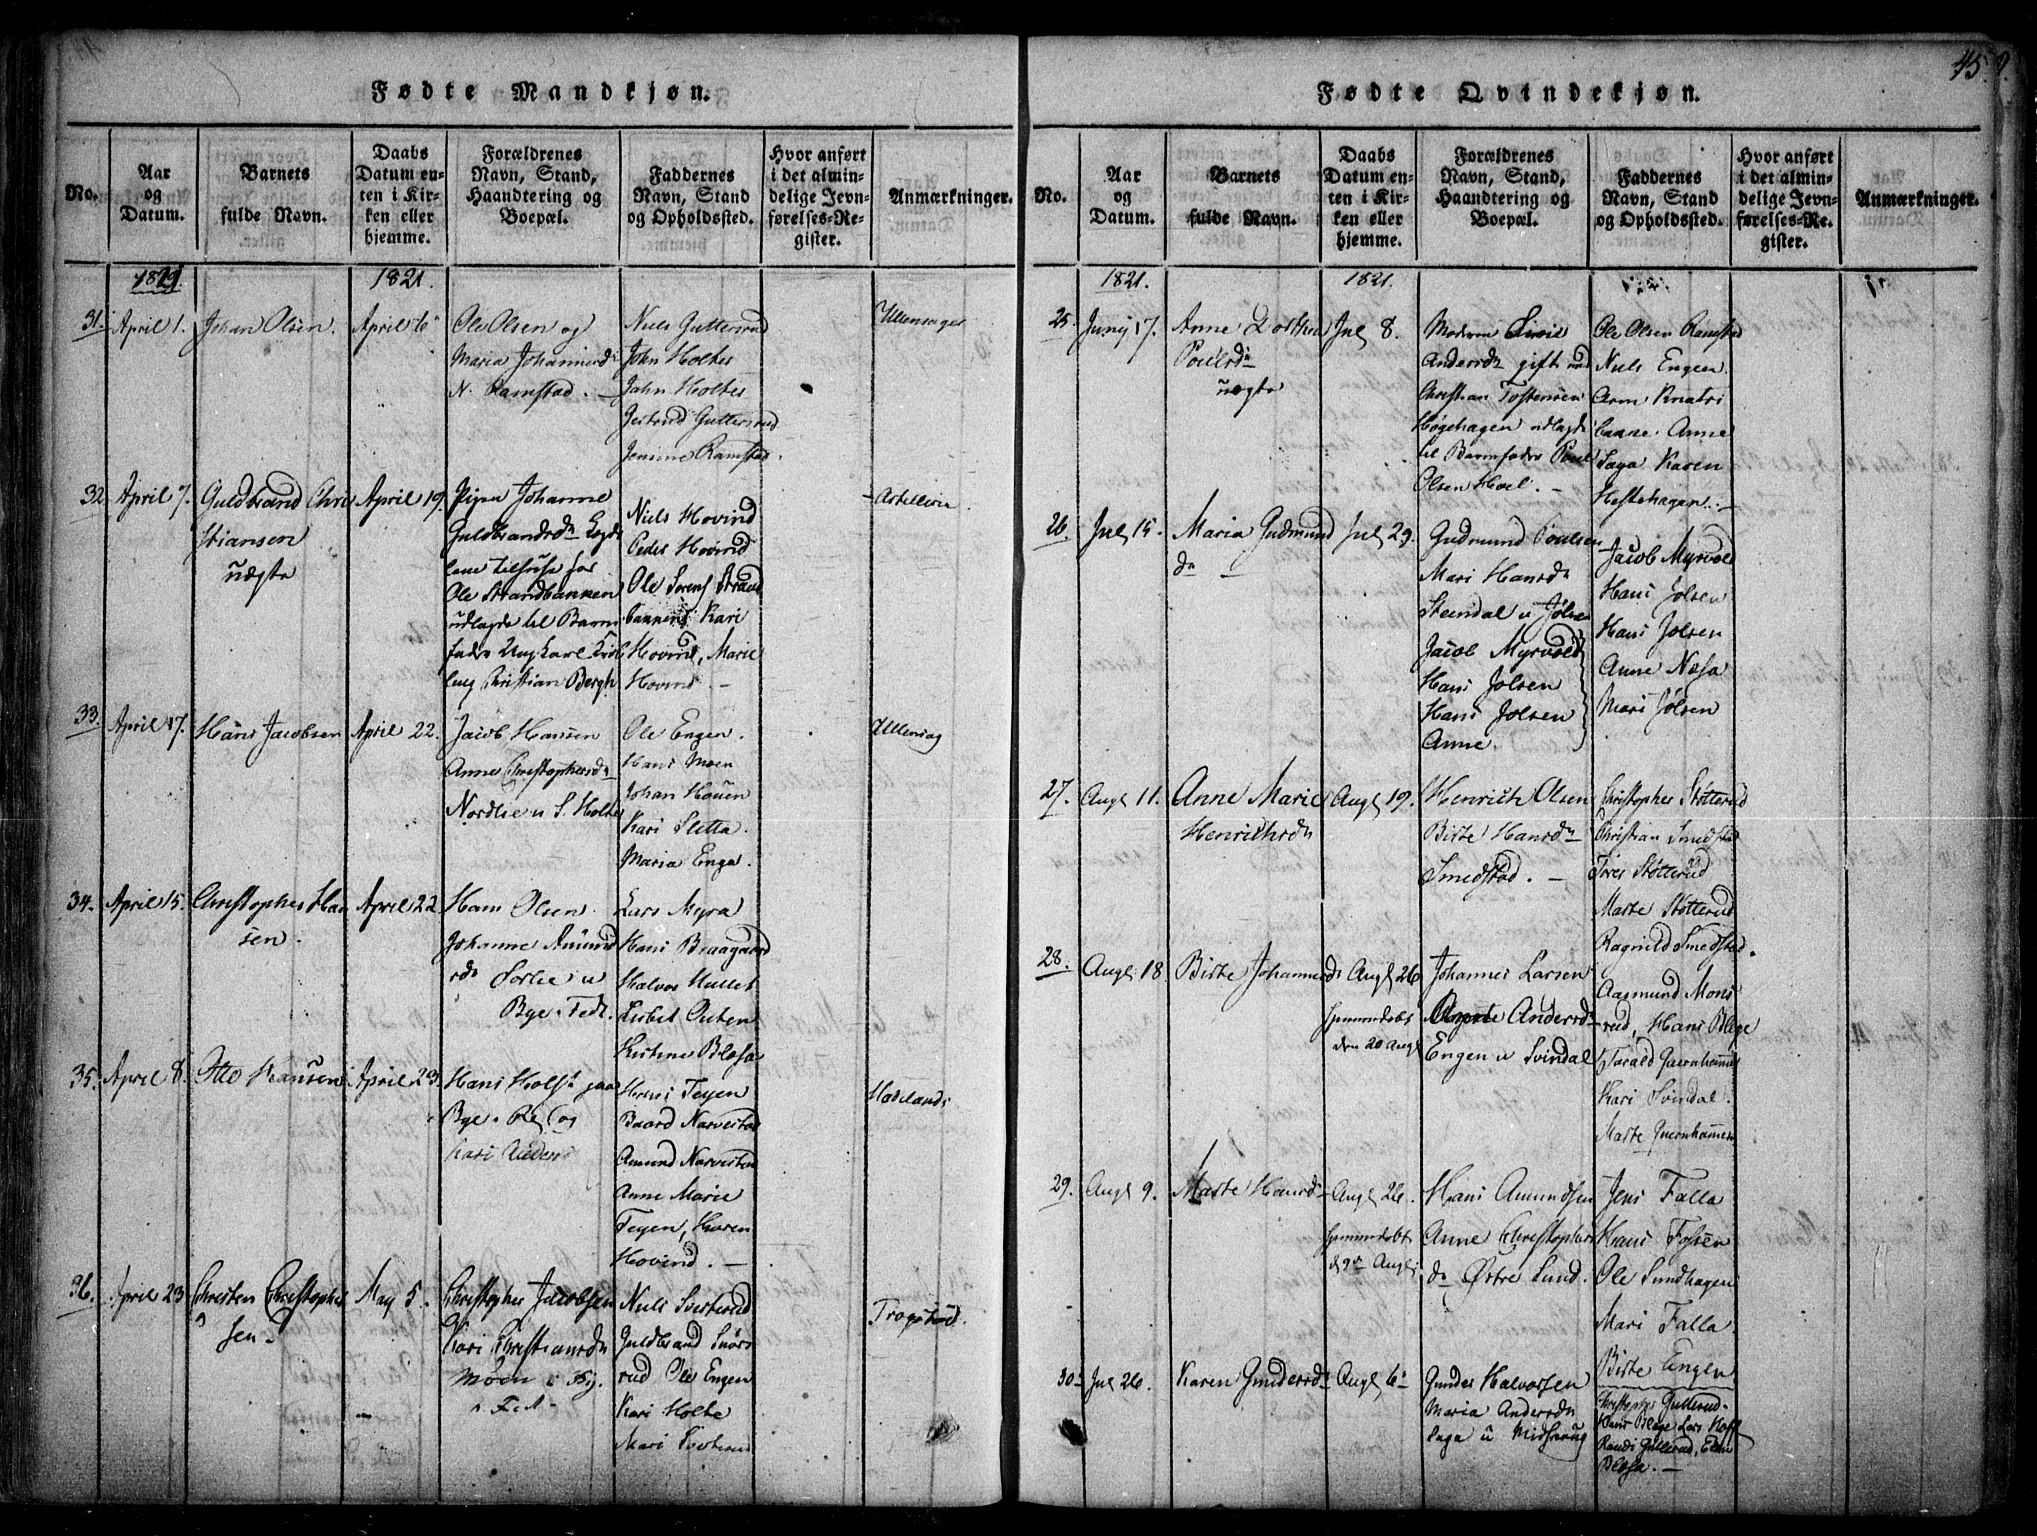 45.
Fødte Mandkjøn.
No.
Aar
og
Datum.
Barnets
fulde Navn.
Daabs
Datum en-
ten i Kir-
ken eller
hjemme.
Forældrenes
Navn, Stand,
Haandtering og
Boepæl.
Faddernes
Navn, Stand
og Opholdssted.
Hvor anført
i det almin-
delige Jevn-
førelses-Re-
gister.
Anmærkninger.
1821.
1821.
31. April 1.
Johan Olsen.
April 6
Ole Olsen og
Maria Johannesd
N. Ramstad. —
Niels Guttersrud
John Holter
Jahn Holter
Jertrud Guttersrud
Ramstad.
Ullensager
32. April 7.
Guldbrand Chri
stiansen
uægte
April 19.
Pigen Johanne
Guldbrandsdr
Ole Strandbakken
udlagde til Barn
fader Ungkarl
Christian Bergh
Niels Hovind
Peder Hovind
Ole Sørens Strand
bakken Kari
Hovind, Marie
Hovind —
33. April 17.
Hans Jacobsen
April 22.
Jacob Hansen
Anne Christophersdr
Nordlie u S. Holter
Ole Engen.
Hans Moen
Johan Houen
Kari Sletta.
Maria Engen.
Ullensag
34. April 15.
Christopher Han
sen.
April 22
Hans Olsen
Johanne Amund
sdr Sorlie u
Bye. Fedt.
Lars Myra
Hans Braagaard
Halvor Hullet
Lisbet Outen
Kistine Blæsa
35. April 8.
Otto Hansen
April 23.
Hans Holst paa
Bye og
Kari Anders
Tejen
Baard Narvestad
Amund Narvestad
Anne Marie
Tejen, Karen
Hovind. —
Hadelands
36. April 23
Christen Christopher
sen
May 5.
Christopher Jacobsen
Kari Christiansdr
Moen
Niels Svesterud
Guldbrand Snørs
rud Ole Engen
Kari Holte
Mari
Trøgstad.
Fødte Qvindekjøn.
No.
Aar
og
Datum.
Barnets
fulde Navn.
Daabs
Datum en-
ten i Kir-
ken eller
hjemme.
Forældrenes
Navn, Stand,
Haandtering og
Boepæl.
Faddernes
Navn, Stand
og Opholdssted.
Hvor anført
i det almin-
delige Jevn-
førelses-Re-
gister.
Anmærkninger.
1821.
1821.
25. Junj 17.
Anne Dorthea
Poulsdr
uægte
Jul 8.
Andersdr gift med
Christian Tostensen
Høgehagen udlagde
til Barnfader Poul
Olsen Hoel. —
Ole Olsen Ramstad
Niels Engen.
Anne
Saga Karen
Hestehagen. —
26. Jul 15.
Maria Gudmund
dr —
Jul 29.
Gudmund Poulsen
Mari Hansdr
Steendal u Jølsen
Jacob Myrvold
Hans Jolsen
Hans Jolsen
Anne.
Jacob Myrvold
Hans Jolsen
Hans Jolsen
Anne Næsa
Mari Jølsen
27. Augl 11.
Anne Marie
Henrichsdr
Augl 19.
Henrich Olsen
Birte Hansdr
Smedstad. —
Christopher Støtterud
Christian Smedstad
Støtterud
Marte Støtterud
Ragnild Smedstad.
28. Augl 18
Birte Johannesdr
Augl 26
hjemmedøbt
den 20 Augl
Johannes Larsen
Andersdr
Engen u Svindal
Aasmund Mons
rud, Hans Blege
Torald Quernhammer
Kari Svindal.
Marte Quernhammer
29. Augl 9.
Marte Hansdr
Augl 26.
hjemmedøbt
d 9de Augl
Hans Amundsen
Anne Christophers
dr Østre Lund.
Jens Falla
Hans Fossen
Ole Sundhagen
Mari Falla.
Birte Engen
30. Jul 26.
Karen Gundersdr
Augl 6
Gunder Halvorsen
Maria Andersdr
Saga u Midskoug
Christopher Gullerud
Hans Blege Lars
Randi Gullerud,
Blæsa. —